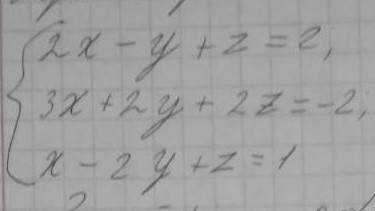 2x - y + z = 2,
3x + 2y + 2z = -2;
x - 2y + z = 1